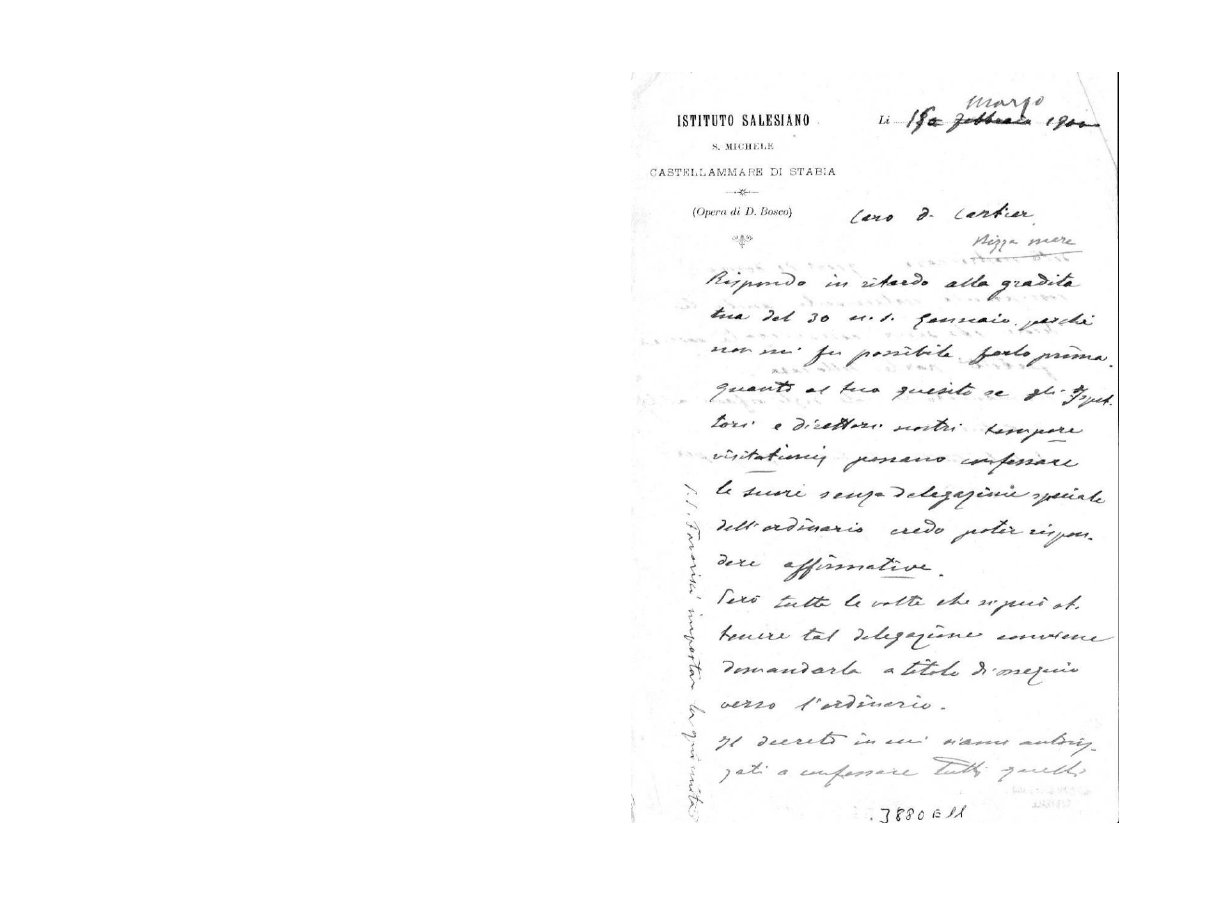 ISTITUTO SALESIANO
S. MICHELE
CASTELLAMMARE DI STABIA
(Opera di D. Bosco)
Li 15 Febbraio 1900
marzo
Caro d. Cartier
Nizza mare
Rispondo in ritardo alla gradita
tua del 30 u.s. Gennaio perchè
non mi fu possibile farlo prima.
Quanto al tuo quesito se gli Ispet-
tori e direttori nostri tempore
visitationis possano confessare
le suore senza delegazione speciale
dell'ordinario credo poter rispon-
dere affirmative.
Però tutte le volte che si può ot-
tenere tal delegazione conviene
domandarla a titolo di ossequio
verso l'ordinario.
Il decreto in cui siamo autoriz-
zati a confessare tutti quelli
P.S. Favorisci impostar la qui unita
3880 E 11